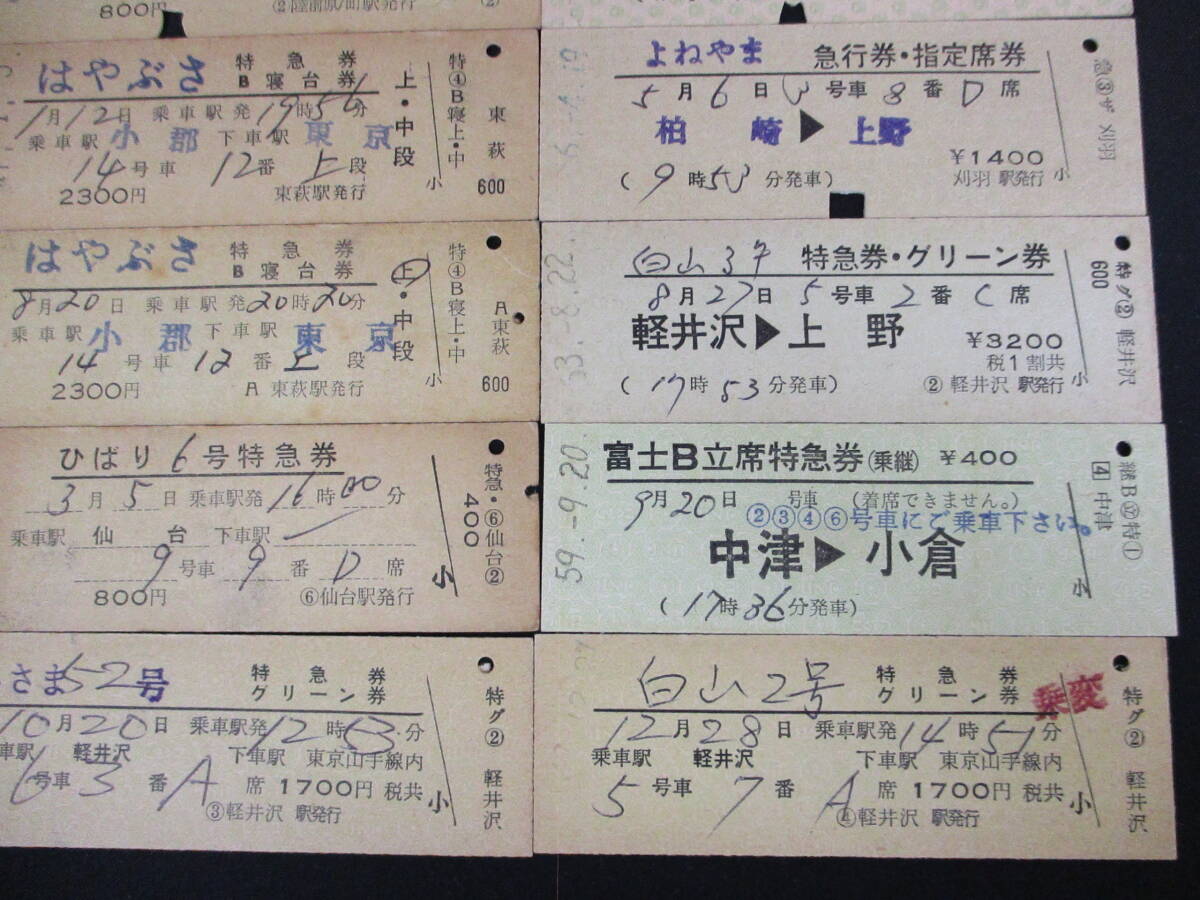 800円
②陸前原ノ町駅発行
はやぶさ 特急券 B寝台券
1月12日 乗車駅発19時56分
乗車駅 小郡 下車駅 東京
14号車 12番 上段
2300円 東萩駅発行
上・中段
小
特④B寝上・中
東萩
600
はやぶさ 特急券 B寝台券
8月20日 乗車駅発20時20分
乗車駅 小郡 下車駅 東京
14号車 12番 上段
2300円 A東萩駅発行
上・中段
小
特④B寝上・中
A東萩
600
ひばり6号特急券
3月5日 乗車駅発16時00分
乗車駅 仙台 下車駅
9号車 9番 D席
800円 ⑥仙台駅発行
小
特急・⑥仙台②
400
さま52号 特急券 グリーン券
10月20日 乗車駅発12時53分
車駅 軽井沢 下車駅 東京山手線内
6号車 3番 A席 1700円 税共
③軽井沢 駅発行
小
特グ② 軽井沢
よねやま 急行券・指定席券
5月6日 3号車 8番 D席
柏崎▶上野
¥1400
(9時53分発車) 刈羽 駅発行
小
急③ザ 刈羽
53.-8.22.
白山3号 特急券・グリーン券
8月27日 5号車 2番 C席
軽井沢▶上野 ¥3200
税1割共
(17時53分発車) ②軽井沢 駅発行
小
特グ② 軽井沢
600
59.-9.20.
富士B立席特急券(乗継) ¥400
9月20日 号車 (着席できません。)
②③④⑥号車にご乗車下さい。
中津▶小倉
(17時36分発車)
小
4 中津
白山2号 特急券 グリーン券
乗変
12月28日 乗車駅発14時51分
乗車駅 軽井沢 下車駅 東京山手線内
5号車 7番 A席 1700円 税共
軽井沢 駅発行
小
特グ② 軽井沢